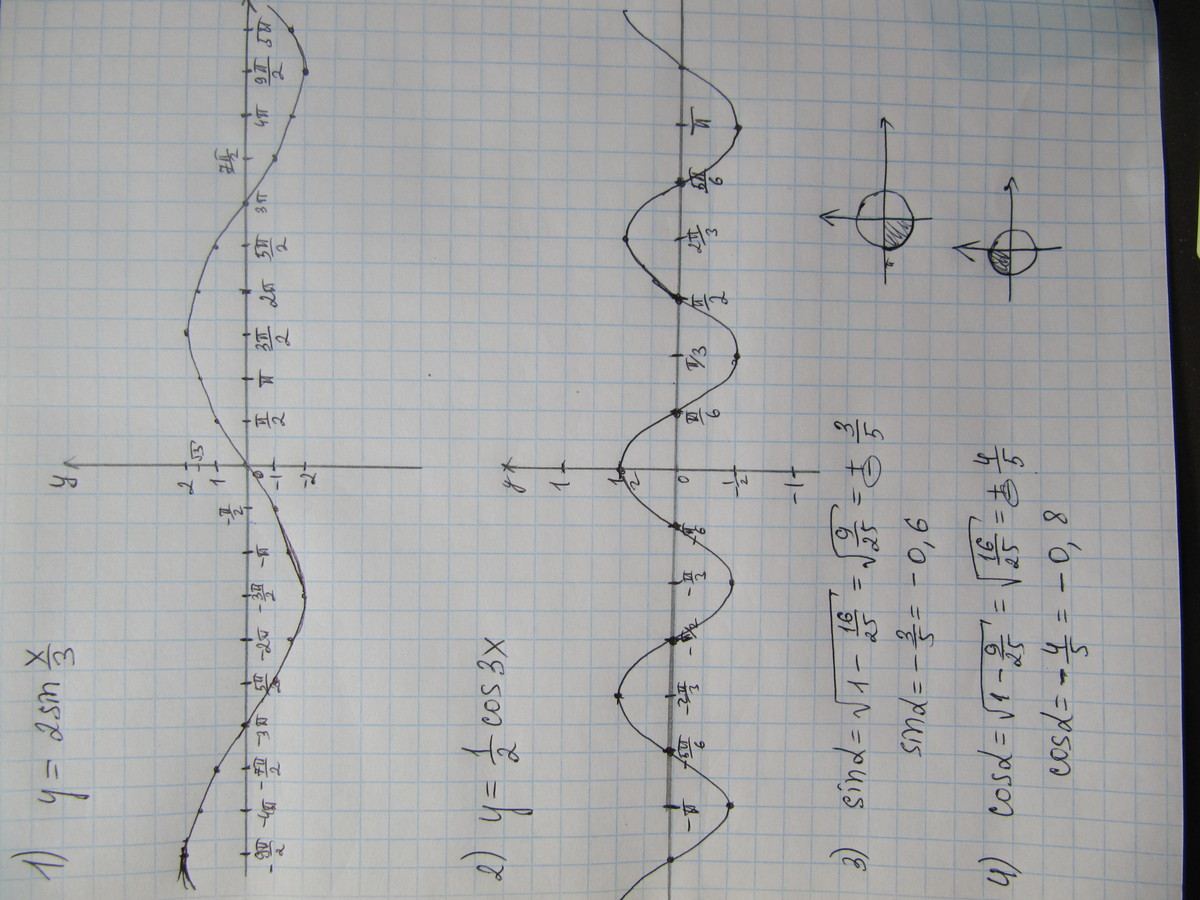 1) y = 2sin x/3
y
2
√3
1
0
-1
-2
-9π/2 -4π -7π/2 -3π 5π/2 -2π -3π/2 -π -π/2 π/2 π 3π/2 2π 5π/2 3π 7π/2 4π 9π/2 5π
2) y = 1/2 cos3x
y
1
1/2
0
-1/2
-1
-π -5π/6 -2π/3 -π/2 -π/3 -π/6 π/6 π/3 π/2 2π/3 5π/6 π
3) sinα = √(1 - 16/25) = √(9/25) = ± 3/5
sinα = -3/5 = -0,6
4) cosα = √(1 - 9/25) = √(16/25) = ± 4/5
cosα = -4/5 = -0,8